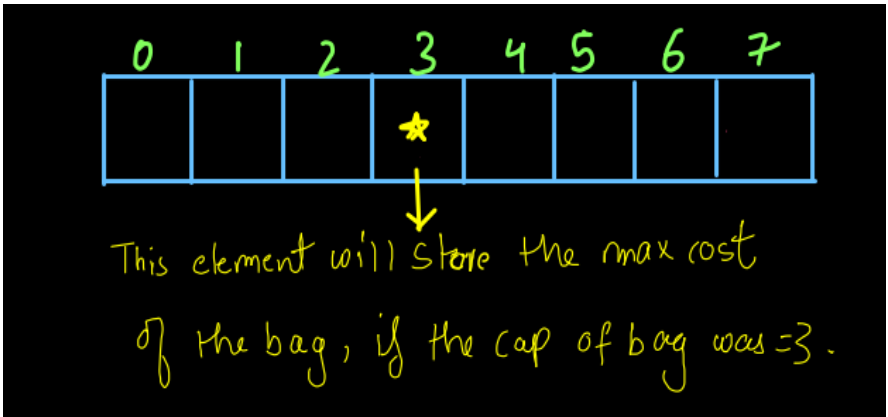 0 1 2 3 4 5 6 7
This element will store the max cost
of the bag, if the cap of bag was =3.